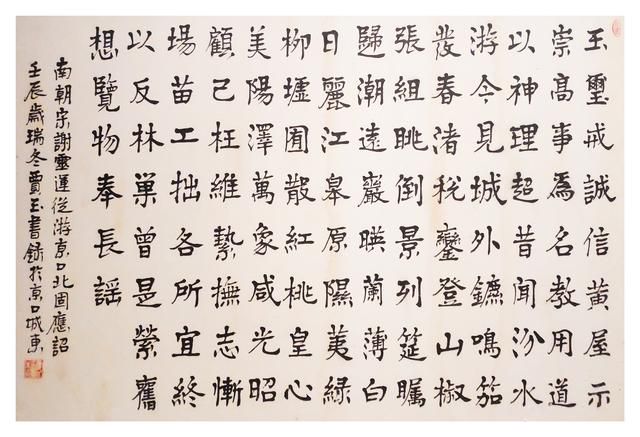 玉璽戒誠信黃屋示
崇高事為名教用道
以神理超昔聞汾水
游今見城外鑣鳴笳
發春渚稅鑾登山椒
張組眺倒景列筵矚
歸潮遠巖暎蘭薄白
日麗江皋原隰荑綠
柳壚囿散紅桃皇心
美陽澤萬象咸光昭
顧己枉維縶撫志慚
場苗工拙各所宜終
以反林巢曾是縈舊
想覽物奉長謠
南朝宋謝靈運從游京口北固應詔
壬辰歲瑞冬賈玉書錄於京口城東